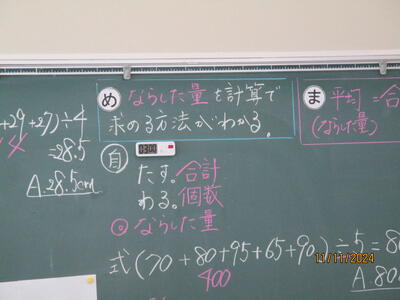 +29+27)÷4
=28.5
A.28.5cm
め ならした量を計算で
求める方法がわかる。
自
03:00
たす。合計
わる。個数
◎ならした量
式(70+80+95+65+90)÷5=8
400
A.80
ま 平均=合
(ならした量)
11/11/2024